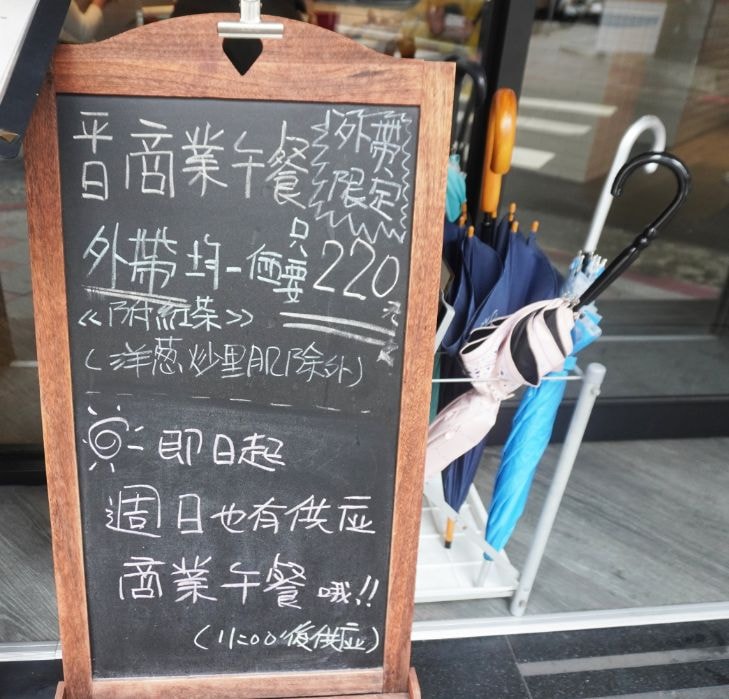 平日商業午餐
外帶限定
外帶均一価只要220元
《附紅茶》
(洋葱炒里肌除外)
即日起
週日也有供应
商業午餐哦!!
(11:00後供应)